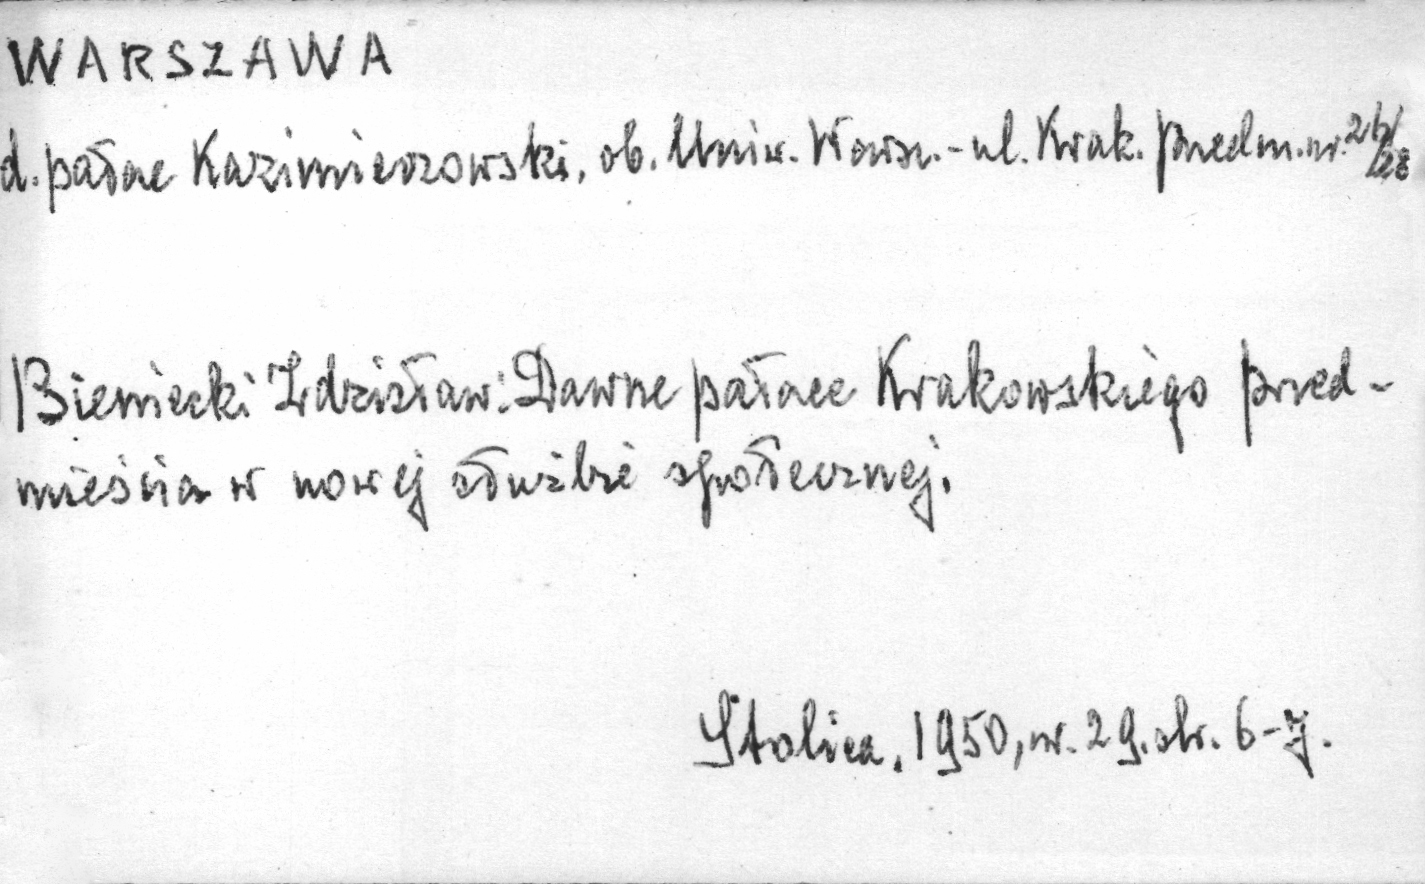 WARSZAWA
d. pałac Kazimierzowski, ob. Uniw. Warsz. - ul. Krak. Przedm. nr. 26/28
Bieniecki Zdzisław: Dawne pałace Krakowskiego Przed-
mieścia w nowej służbie społecznej.
Stolica, 1950, nr. 29. str. 6-7.